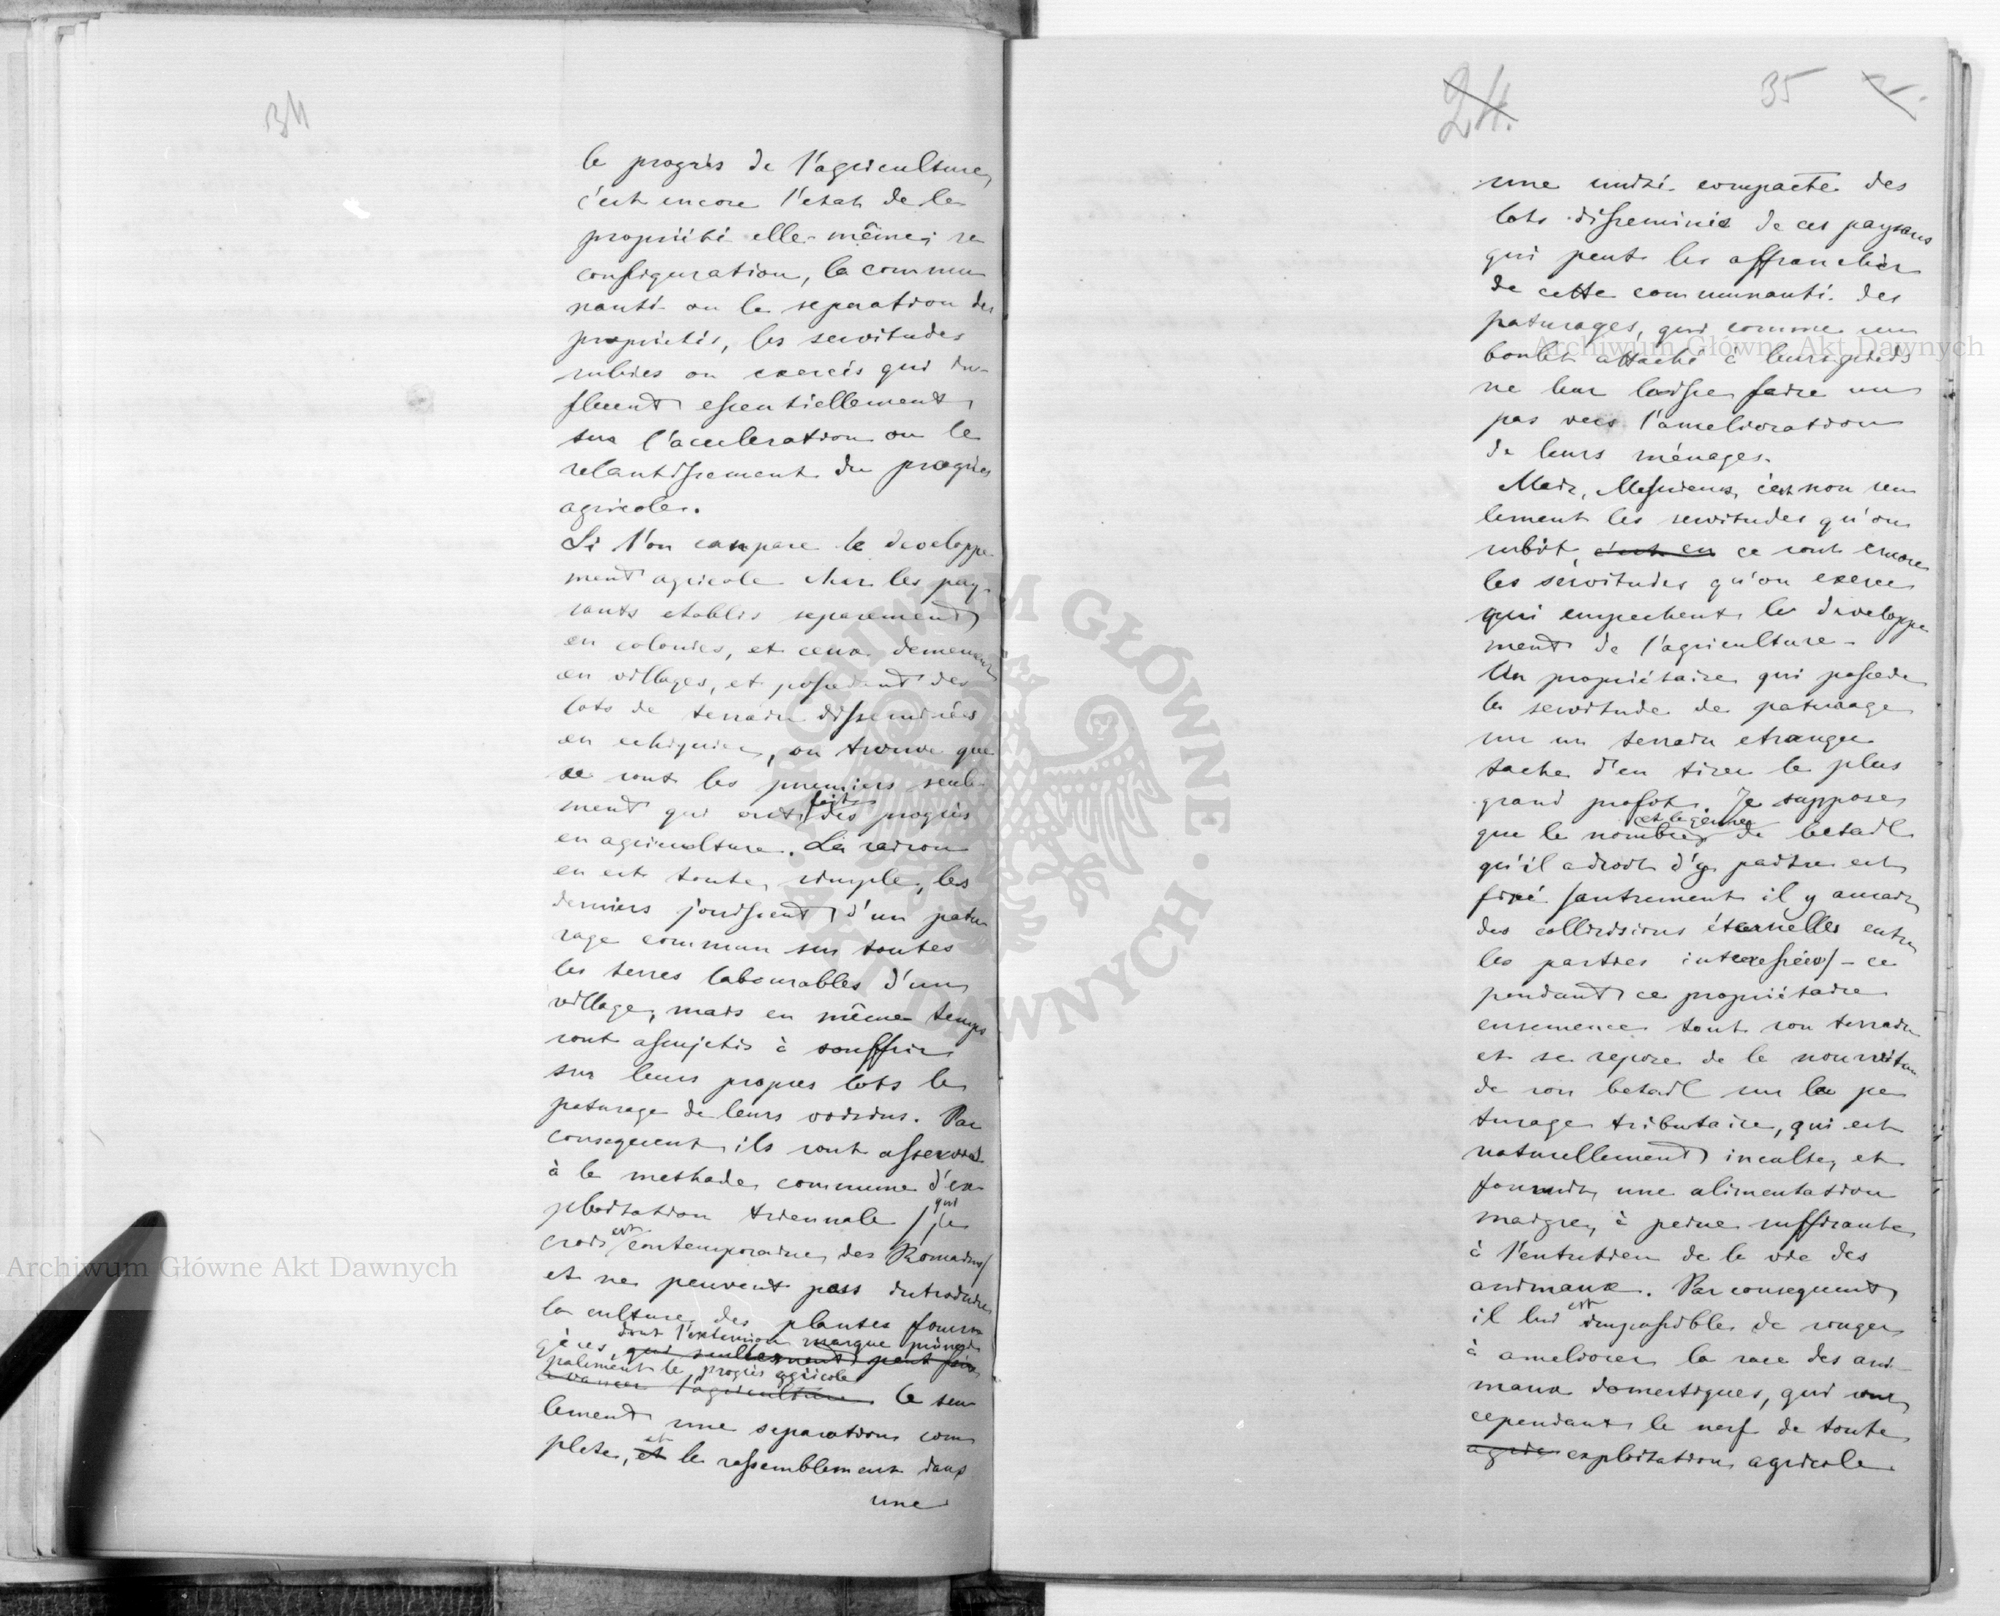 34
le progrès de l'agriculture,
c'est encore l'etat de la
propriété elle-même; sa
configuration, la commu
nauté ou la separation des
propriétés, les servitudes
subies ou exercés qui in-
fluent essentiellement
sur l'acceleration ou le
relantissement du progrès
agricole.
Si l'on compare le developpe
ment agricole chez les pay-
sants etablis separement
en colonies, et ceux demeurant
en villages, et possedant des
lots de terrain disseminées
en echiquier, on trouve que
ce sont les premiers seule
ment qui ont faits des progrès
en agriculture. La raison
en est toute simple, les
derniers jouissent d'un patu
rage commun sur toutes
les terres labourables d'un
village, mais en même temps
sont assujetis à souffrir
sur leurs propres lots le
paturage de leurs voisins. Par
consequent ils sont asservis
à la methode commune d'ex
ploitation triennale / qui je
crois est contemporaine des Romains/
et ne peuvent pas introduire
la culture des plantes fourra
gères, dont l'extension marque princi
qui seulement peut faire
palement le progrès agricole
avancer l'agriculture C'est seu
lement une separation com
plete, et et le rassemblement dans
une
24. 35
une unité compacte des
lots disseminés de ces paysans
qui peut les affranchir
de cette communauté des
paturages, qui comme un
boulet attaché à leurs pieds
ne leur laisse faire un
pas vers l'amelioration
de leurs ménages.
Mais, Messieurs, c'est non seu
lement les servitudes qu'on
subit c'est en ce sont encore
les servitudes qu'on exerce
qui empechent le developpe
ment de l'agriculture.
Un propriétaire qui possede
la servitude de paturage
sur un terrain etranger
tache d'en tirer le plus
grand profit. Je suppose
que le nombre et le genre de betail
qu'il a droit d'y paitre est
fixé /autrement il y aurait
des collisions éternelles entre
les parties interessées/ - ce
pendant ce propriétaire
ensemence tout son terrain
et se repose de la nourriture
de son betail sur le pa
turage tributaire, qui est
naturellement inculte, et
fournit une alimentation
maigre, à peine suffisante
à l'entretien de la vie des
animaux. Par consequent
il lui est impossible de songer
à ameliorer la race des ani-
maux domestiques, qui sont
cependant le nerf de toute
agric exploitation agricole
Archiwum Główne Akt Dawnych
Archiwum Główne Akt Dawnych
ARCHIWUM GŁÓWNE AKT DAWNYCH